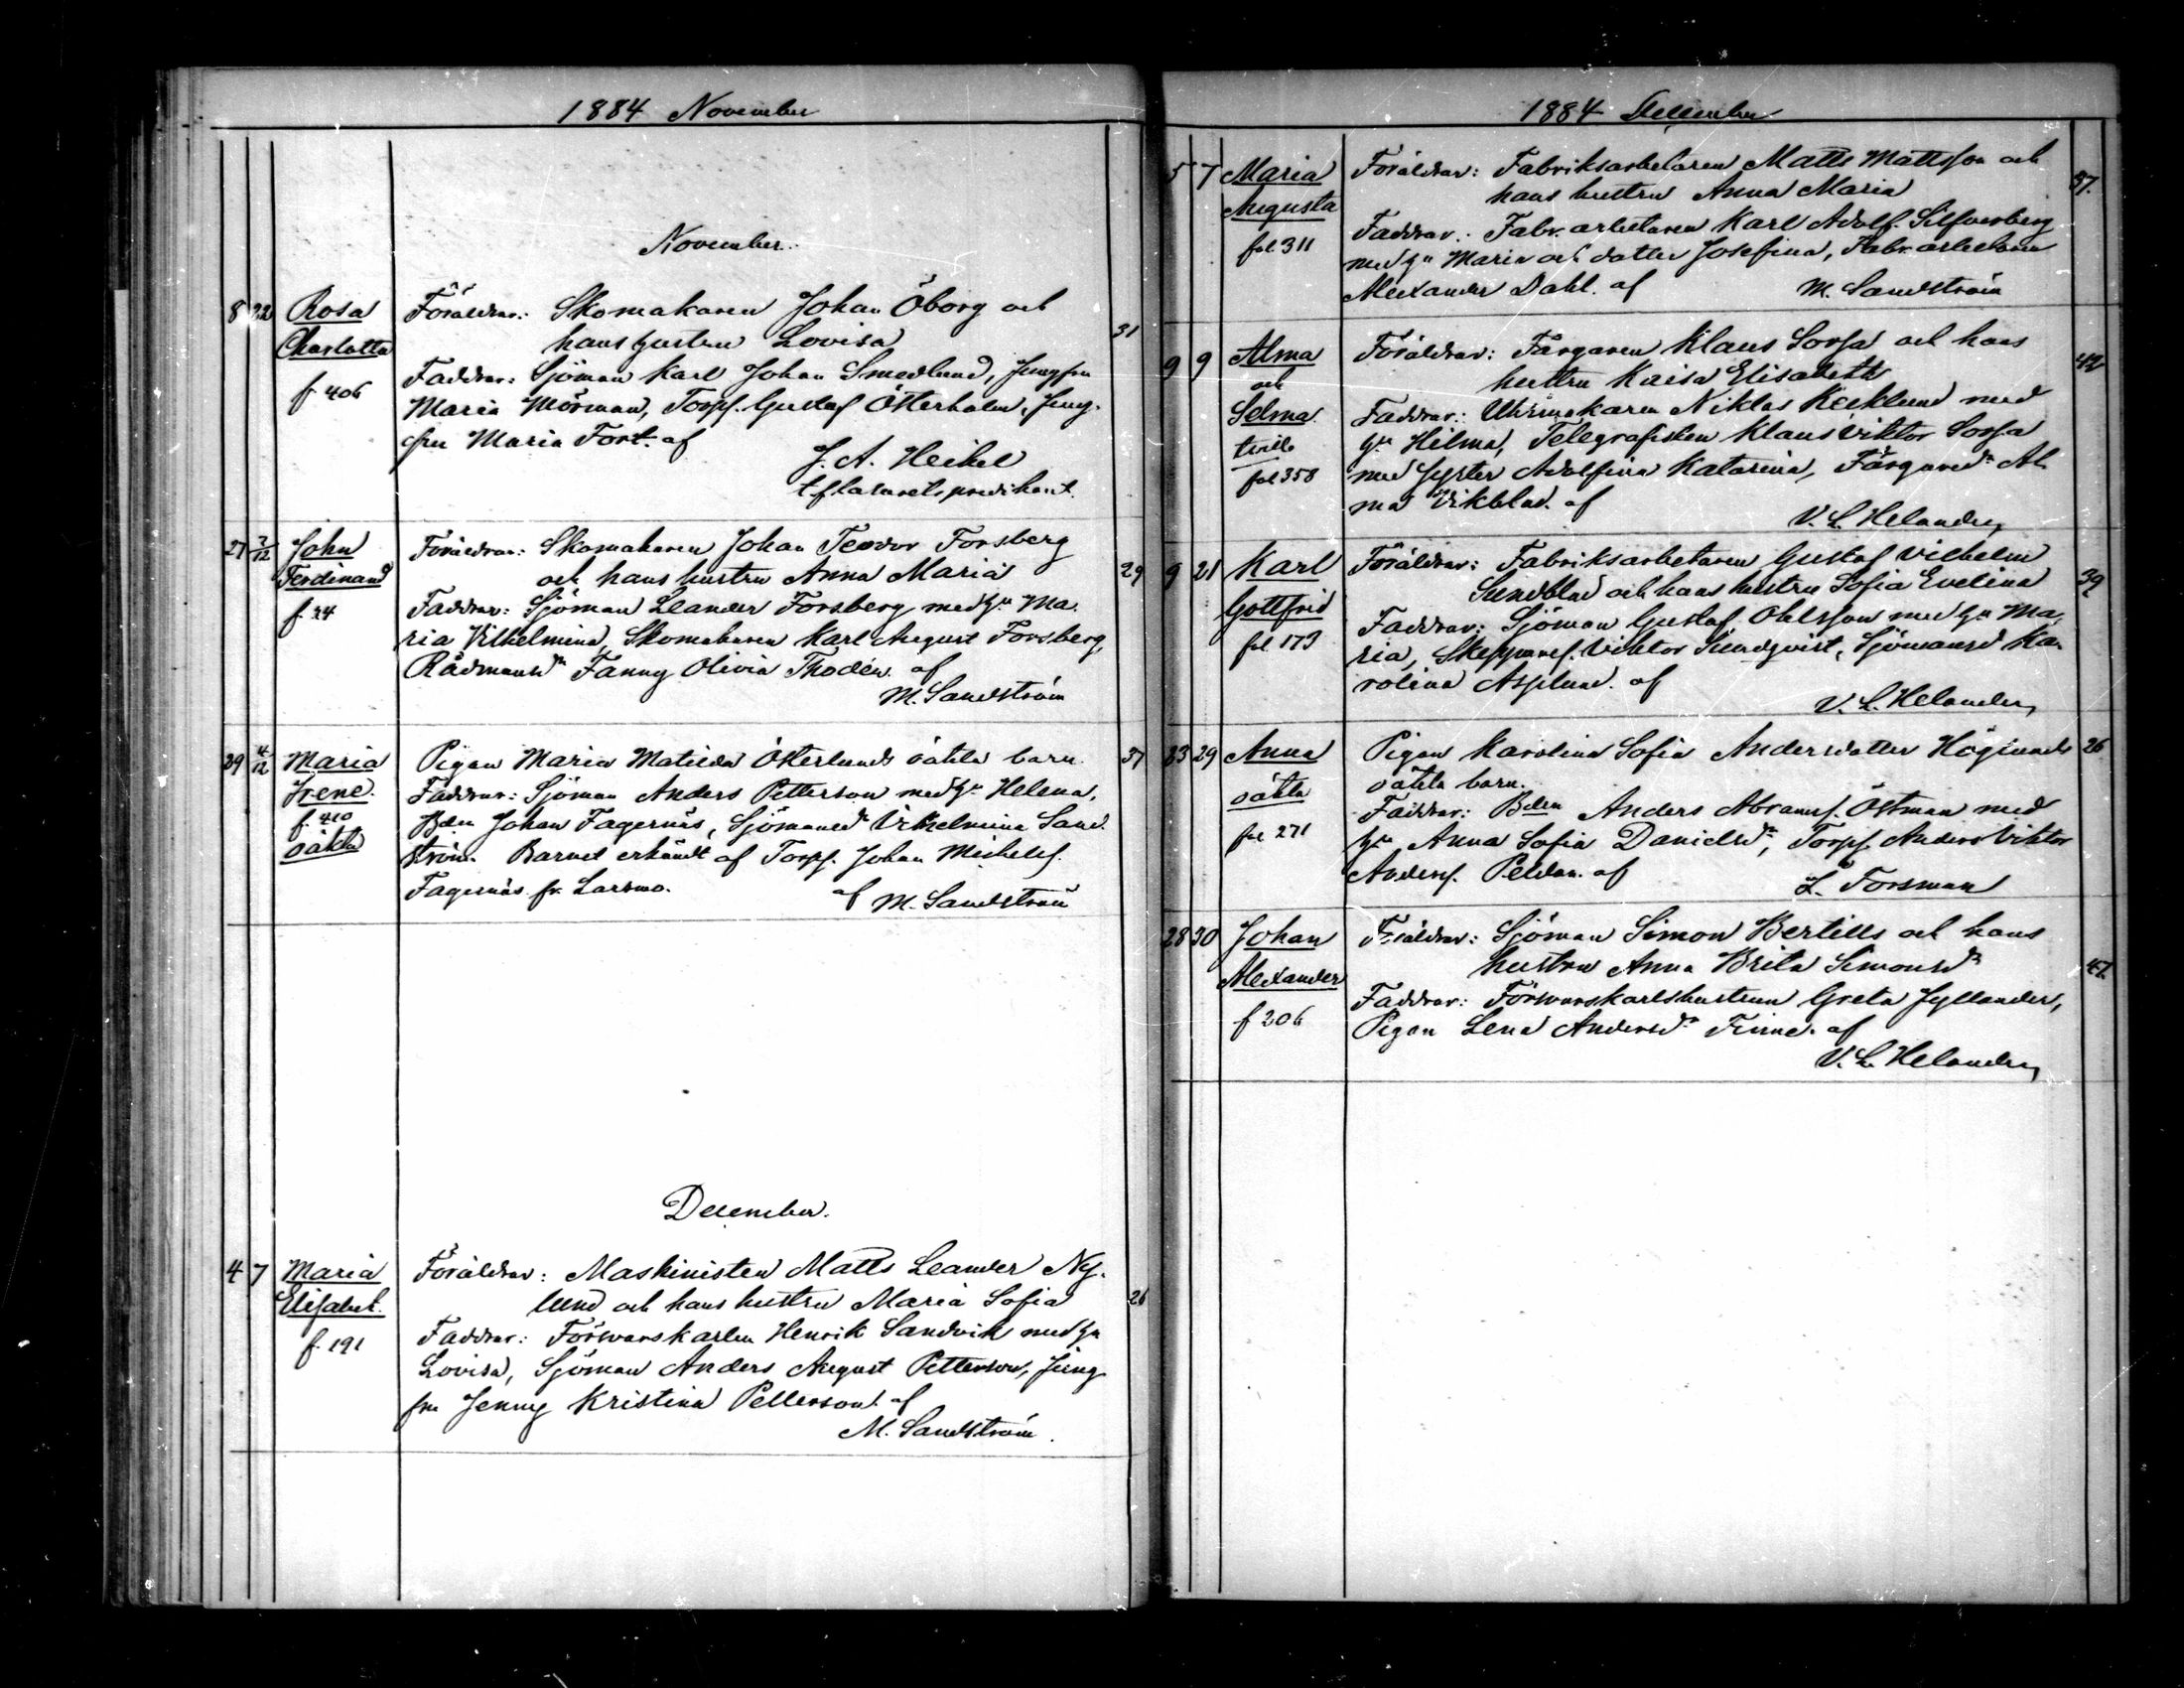 1884 November
November.
8 22 Rosa Föräldrar: Skomakaren Johan Öborg och 31
Charlotta hans hustru Lovisa
f 406 Faddrar: Sjöman Karl Johan Smedlund, Jungfru
Maria Mörman, Torps. Gustaf Österholm, Jung-
fru Maria Fort. af
J. A. Heikel
t. f. lasarettspredikant.
27 7/12 John Föräldrar: Skomakaren Johan Teodor Forsberg 29
Ferdinand och hans hustru Anna Maria
f. 24 Faddrar: Sjöman Leander Forsberg med hu Ma-
ria Vilhelmina, Skomakaren Karl August Forsberg,
Rådmansdr Fanny Olivia Thodén. af
M. Sandström
29 4/12 Maria Pigan Maria Matilda Österlunds oäkta barn. 37
Irene. Faddrar: Sjöman Anders Petterson med hu Helena,
f. 410 Bdn Johan Fagernäs, Sjömansdr Vilhelmina Sand-
oäkta ström. Barnet erkändt af Torps. Johan Michels.
Fagernäs fr. Larsmo. af M. Sandström
December.
4 7 Maria Föräldrar: Maskinisten Matts Leander Ny- 26
Elisabet. lund och hans hustru Maria Sofia
f. 191 Faddrar: Försvarskarlen Henrik Sandvik med hu
Lovisa, Sjöman Anders August Petterson, Jung-
fru Jenny Kristina Petterson. af
M. Sandström.
1884 December
5 7 Maria Föräldrar: Fabriksarbetaren Matts Mattsson och 37.
Augusta hans hustru Anna Maria
fol 311 Faddrar: Fabr. arbetaren Karl Adolf Silfversberg
med hu Maria och dotter Josefina, Fabr. arbetaren
Alexander Dahl. af M. Sandström
9 9 Alma Föräldrar: Färgaren Klaus Sorsa och hans 42
och hustru Kaisa Elisabeth
Selma Faddrar: Uhrmakaren Niklas Kecklund med
tvill. hu Hilma, Telegrafisten Klaus Viktor Sorsa
fol 358 med syster Adolfina Katarina, Färgaredr Al-
ma Vikblad. af
V. L. Helander
9 21 Karl Föräldrar: Fabriksarbetaren Gustaf Vilhelm 39
Gottfrid Sundblad och hans hustru Sofia Evelina
fol 173 Faddrar: Sjöman Gustaf Ohlsson med hu Ma-
ria, Skeppares. Viktor Sundqvist, Sjömansd Ka-
rolina Asplund. af
V. L. Helander
23 29 Anna Pigan Karolina Sofia Andersdotter Höglunds 26
oäkta oäkta barn.
fol 271 Faddrar: Bdn Anders Abrams. Östman med
hu Anna Sofia Danielsdr, Torps. Anders Viktor
Anders. Peldan. af
L. Forsman
28 30 Johan Föräldrar: Sjöman Simon Bertills och hans 47
Alexander hustru Anna Brita Simonsdr
f 206 Faddrar: Försvarskarlshustrun Greta Jyllander,
Pigan Lena Andersdr Finne. af
V. L. Helander